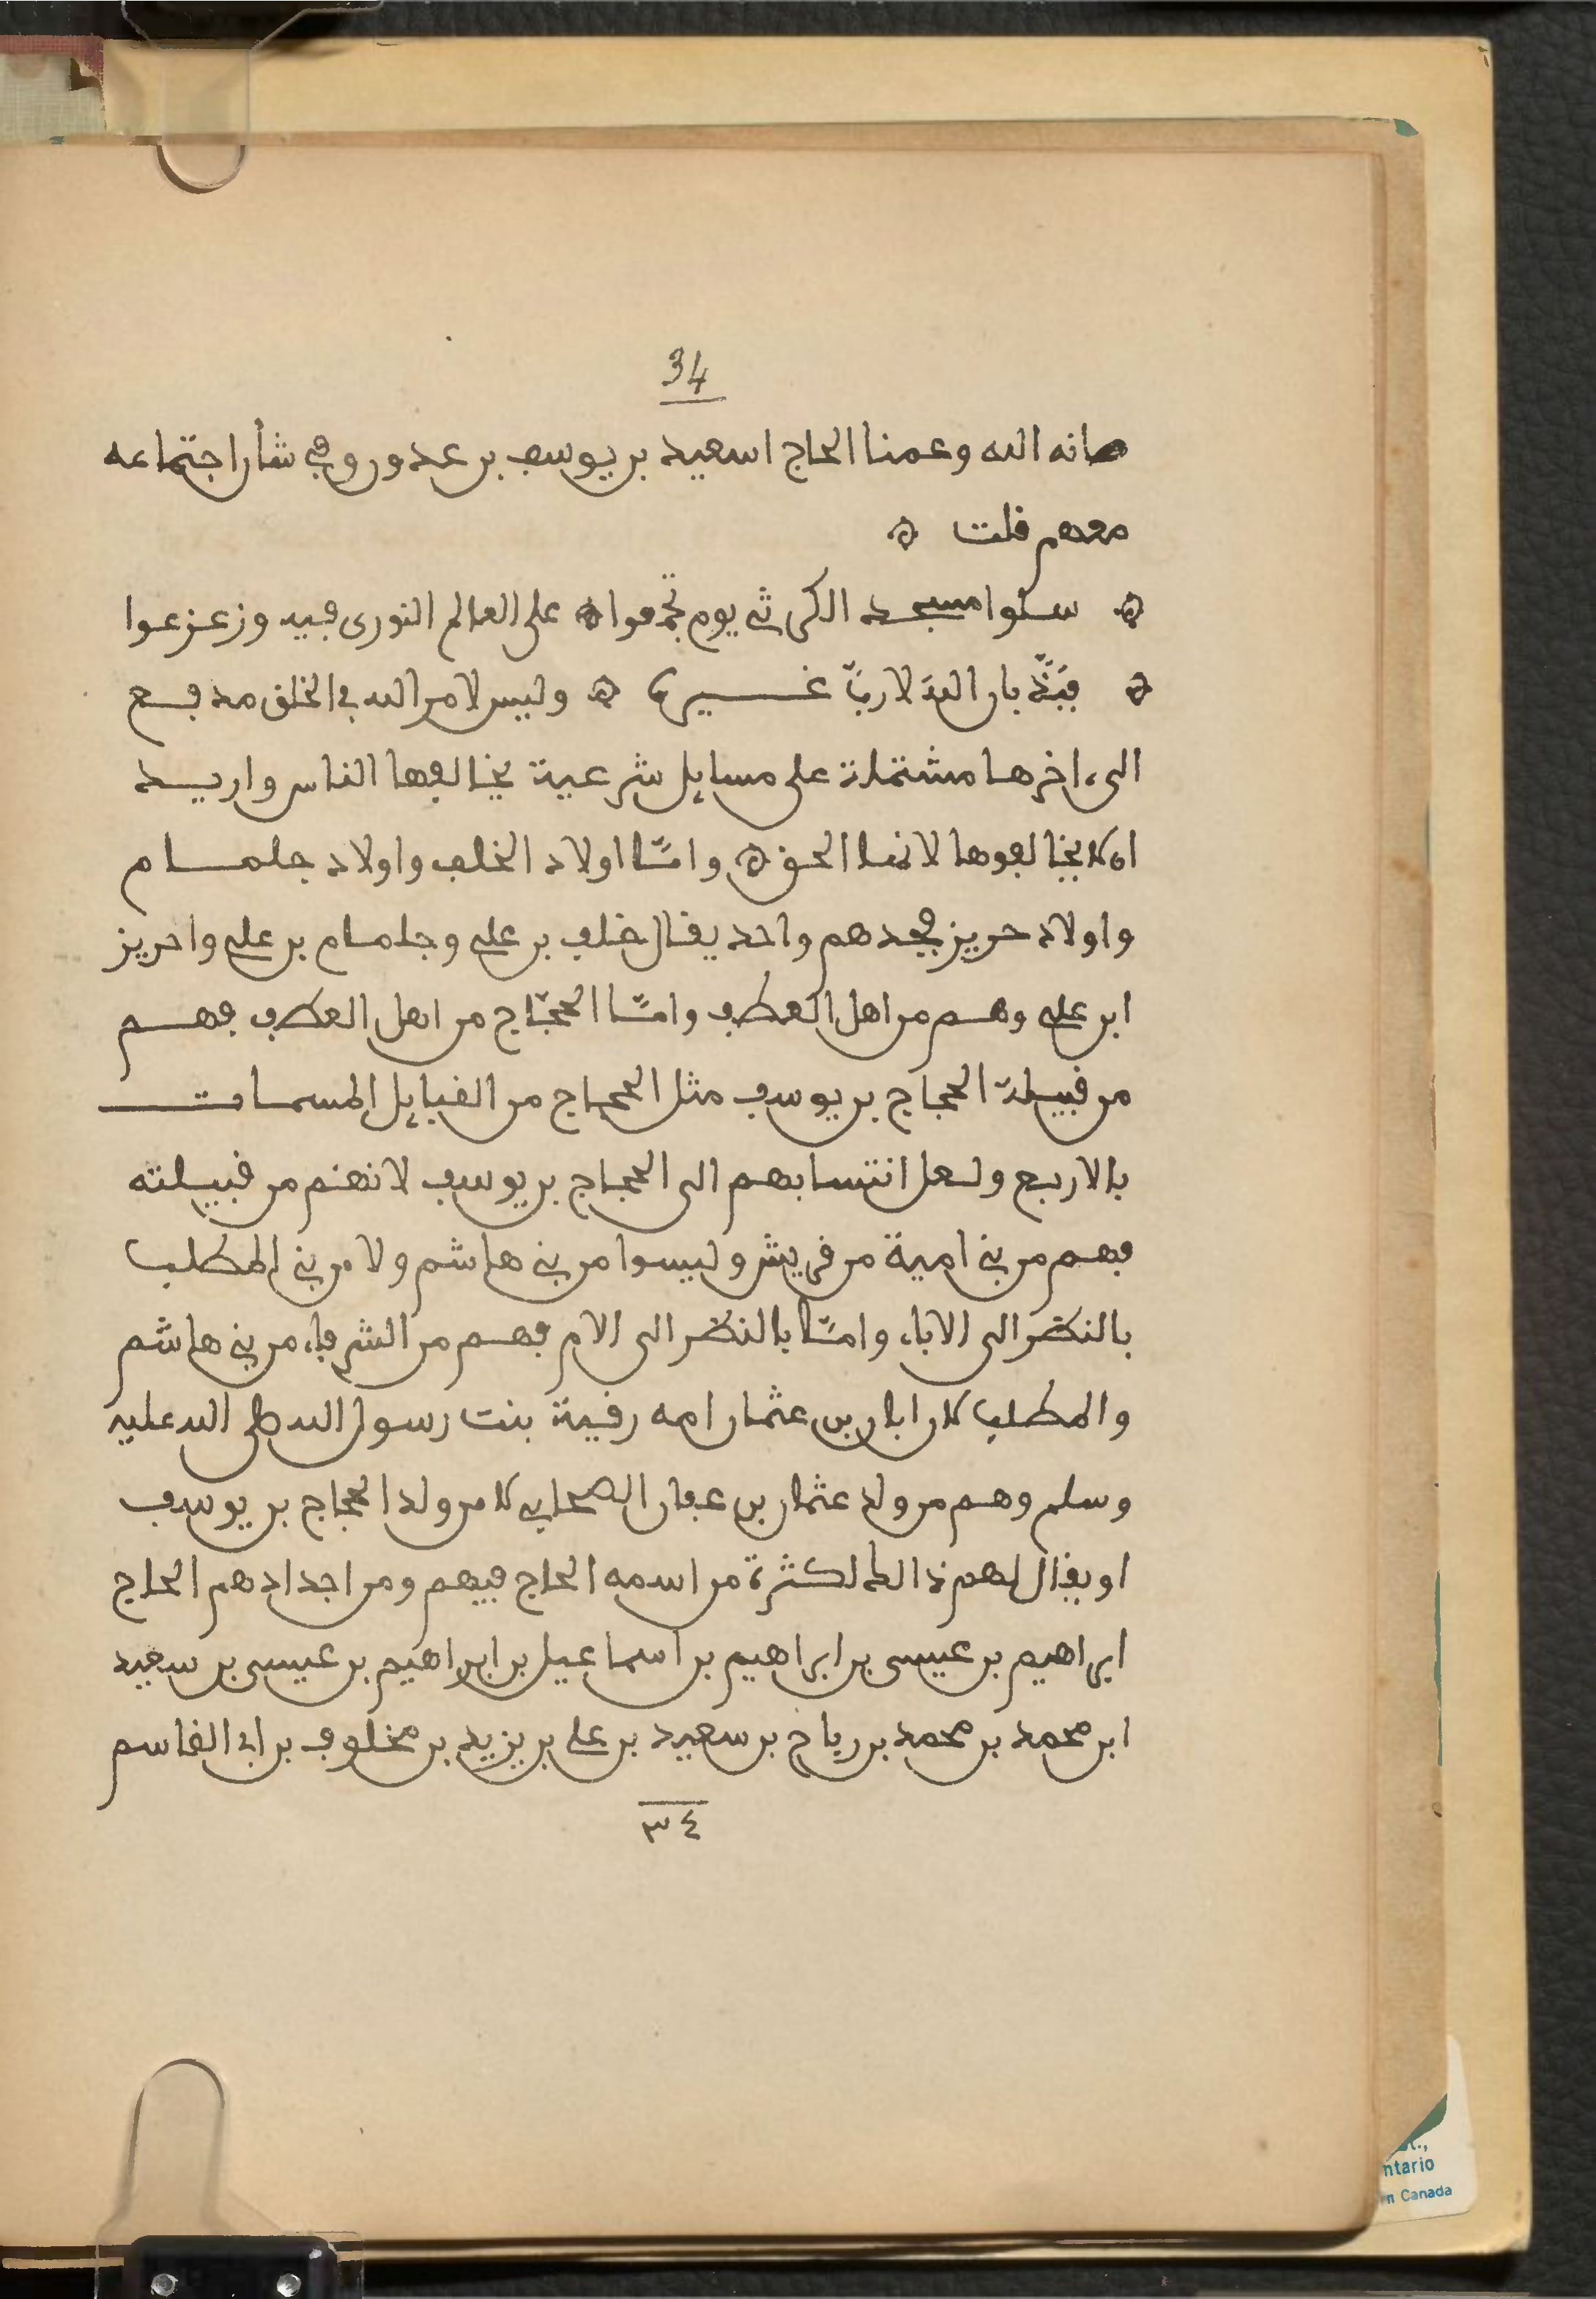 34
صانه الله وعمنا الحاج اسعيد بن يوسف بن عدور وفي شأن اجتماعه
معهم قلت ۞
۞ سلوا مسجد الكرثي يوم تجمعوا ۞ على العالم النوري فيه وزعزعوا
۞ بأن الله لا رب غيره ۞ وليس لامر الله في الخلق مدفع
الى ءاخرها مشتملة على مسايل شرعية يخالفها الناس واريد
ان لا يخالفوها لانها الحق ۞ وامّا اولاد الخلف واولاد جلمام
واولاد حريز فجدهم واحد يقال خلف بن علي وجلمام بن علي واحريز
ابن علي وهم من اهل العطف وامّا الحجّاج من اهل العطف فهم
من قبيلة الحجاج بن يوسف مثل الحجاج من القبايل المسمات
بالاربع ولعل انتسابهم الى الحجاج بن يوسف لانهم من قبيلته
فهم من بني امية من قريش وليسوا من بني هاشم ولا من بني المطلب
بالنظر الى الاباء وامّا بالنظر الى الام فهم من الشرفاء من بني هاشم
والمطلب لان ابان بن عثمان امه رقية بنت رسول الله صلى الله عليه
وسلم وهم من ولد عثمان بن عفان الصحابي لا من ولد الحجاج بن يوسف
او يقال لهم ذالك لكثرة من اسمه الحاج فيهم ومن اجدادهم الحاج
ابراهيم بن عيسى بن ابراهيم بن اسماعيل بن ابراهيم بن عيسى بن سعيد
ابن محمد بن محمد بن رياح بن سعيد بن علي بن يزيد بن مخلوف بن ابي القاسم
٣٤
ntario
in Canada